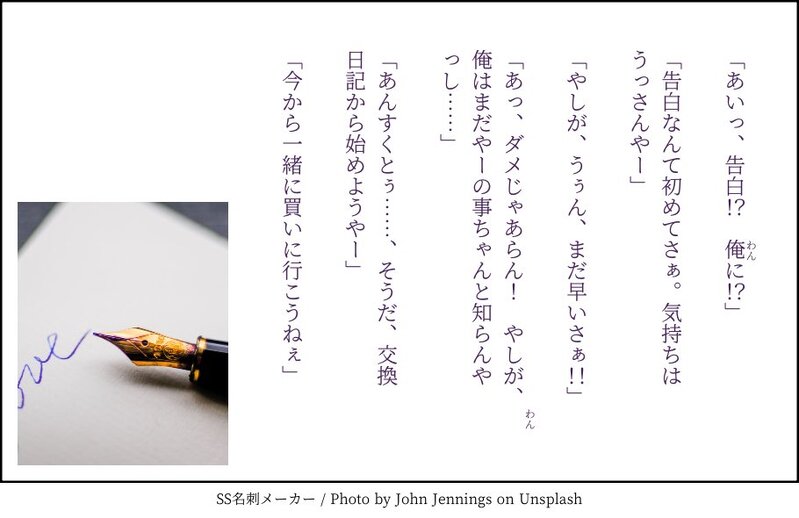 「あいっ、告白!?　俺に!?」
わん
「告白なんて初めてさぁ。気持ちは
うっさんやー」
「やしが、うぅん、まだ早いさぁ!!」
「あっ、ダメじゃあらん！　やしが、
わん
俺はまだやーの事ちゃんと知らんや
っし……」
「あんすくとぅ……、そうだ、交換
日記から始めようやー」
「今から一緒に買いに行こうねぇ」
ove
SS名刺メーカー / Photo by John Jennings on Unsplash